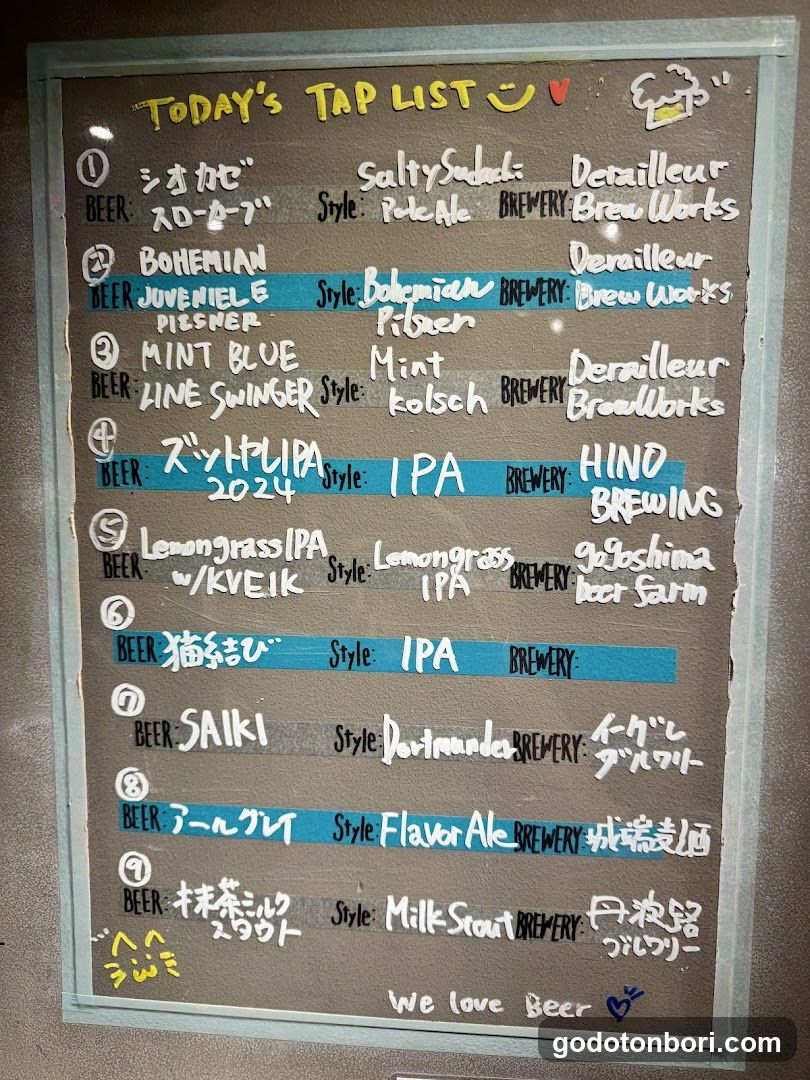 TODAY'S TAP LIST
① シオカゼ Salty Sudachi Derailleur
BEER: スローカーブ Style: Pale Ale BREWERY: Brew Works
② BOHEMIAN Derailleur
BEER: JUVENIELE Style: Bohemian BREWERY: Brew Works
PILSNER Pilsner
③ MINT BLUE Mint Derailleur
BEER: LINE SWINGER Style: Kolsch BREWERY: BrewWorks
④
BEER: ズットやしIPA Style: IPA BREWERY: HINO
2024 BREWING
⑤
BEER: Lemongrass IPA Style: Lemongrass BREWERY: gogoshima
w/KVEIK IPA beer farm
⑥
BEER: 猫結び Style: IPA BREWERY:
⑦
BEER: SAIKI Style: Dortmunder BREWERY: イーグレ
ブルワリー
⑧
BEER: アールグレイ Style: Flavor Ale BREWERY: 城端麦酒
⑨
BEER: 抹茶ミルク Style: Milk Stout BREWERY: 丹波路
スタウト ブルワリー
We love Beer
godotonbori.com